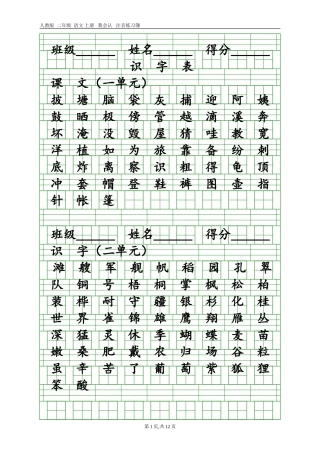 人教版 二年级 语文上册 我会认 注音练习册
班级 姓名 得分
识 字 表
课 文（一单元）
披 塘 脑 袋 灰 捕 迎 阿 姨
肚 晒 极 傍 管 越 滴 溪 奔
坏 淹 没 毁 屋 猜 洞 娃 宽
洋 植 如 为 旅 靠 备 纷 刺
底 炸 离 识 粗 得 龟 顶
冲 套 帽 登 鞋 裤 图 壶 指
针 帐 篷
班级 姓名 得分
识 字（二单元）
滩 艘 军 舰 帆 稻 园 孔 翠
队 铜 号 梧 桐 掌 枫 松 柏
装 桦 耐 守 疆 银 杉 化 桂
世 界 雀 锦 雄 鹰 翔 雁 丛
深 猛 灵 休 壮 蝴 蝶 麦 苗
嫩 桑 肥 戴 农 归 场 谷 粒
虽 辛 苦 了 葡 萄 紫 狐 狸
笨 酸
第 1 页,共 12 页